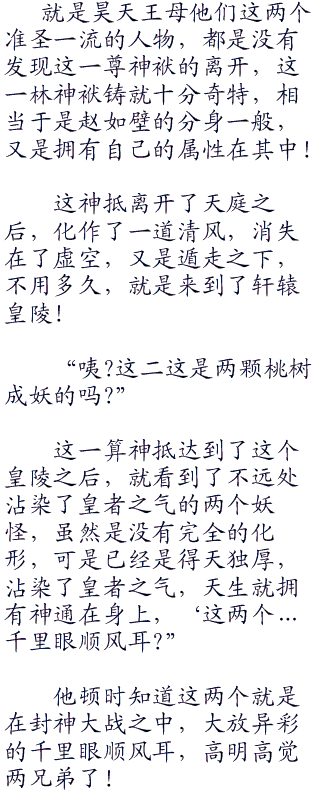 就是昊天王母他们这两个
准圣一流的人物，都是没有
发现这一尊神袱的离开，这
一林神袱铸就十分奇特，相
当于是赵如壁的分身一般，
又是拥有自己的属性在其中！
这神抵离开了天庭之
后，化作了一道清风，消失
在了虚空，又是遁走之下，
不用多久，就是来到了轩辕
皇陵！
“咦？这二这是两颗桃树
成妖的吗？”
这一算神抵达到了这个
皇陵之后，就看到了不远处
沾染了皇者之气的两个妖
怪，虽然是没有完全的化
形，可是已经是得天独厚，
沾染了皇者之气，天生就拥
有神通在身上，‘这两个…
千里眼顺风耳？”
他顿时知道这两个就是
在封神大战之中，大放异彩
的千里眼顺风耳，高明高觉
两兄弟了！